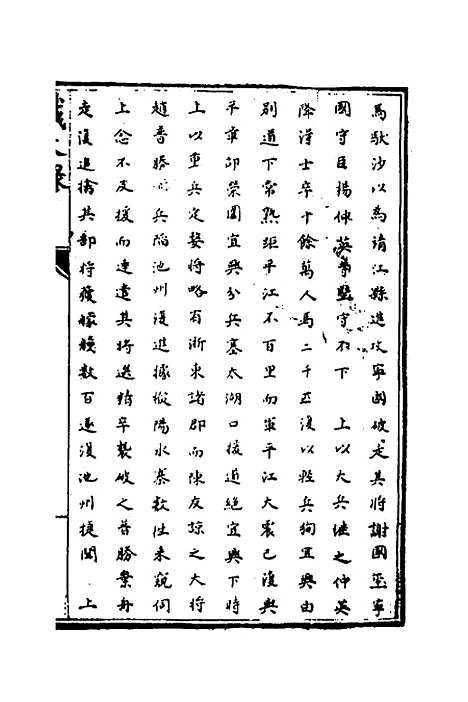 馬馱沙以為靖江縣進攻寧國破走其將謝國璽寧
國守臣楊仲英等堅守不下　上以大兵進之仲英
降得士卒十餘萬人馬二千匹復以輕兵徇宜興由
別道下常熟距平江不百里而軍平江大震已復與
平章邵榮圍宜興分兵塞太湖口援道絕宜興下時
上以重兵定婺將略有浙東諸郡而陳友諒之大將
趙普勝以兵陷池州復進據樅陽水寨數往來窺伺
上念不及援而達遣其將選精卒襲破之普勝棄舟
走復追擒其部將獲艨艟數百遂復池州捷聞　上